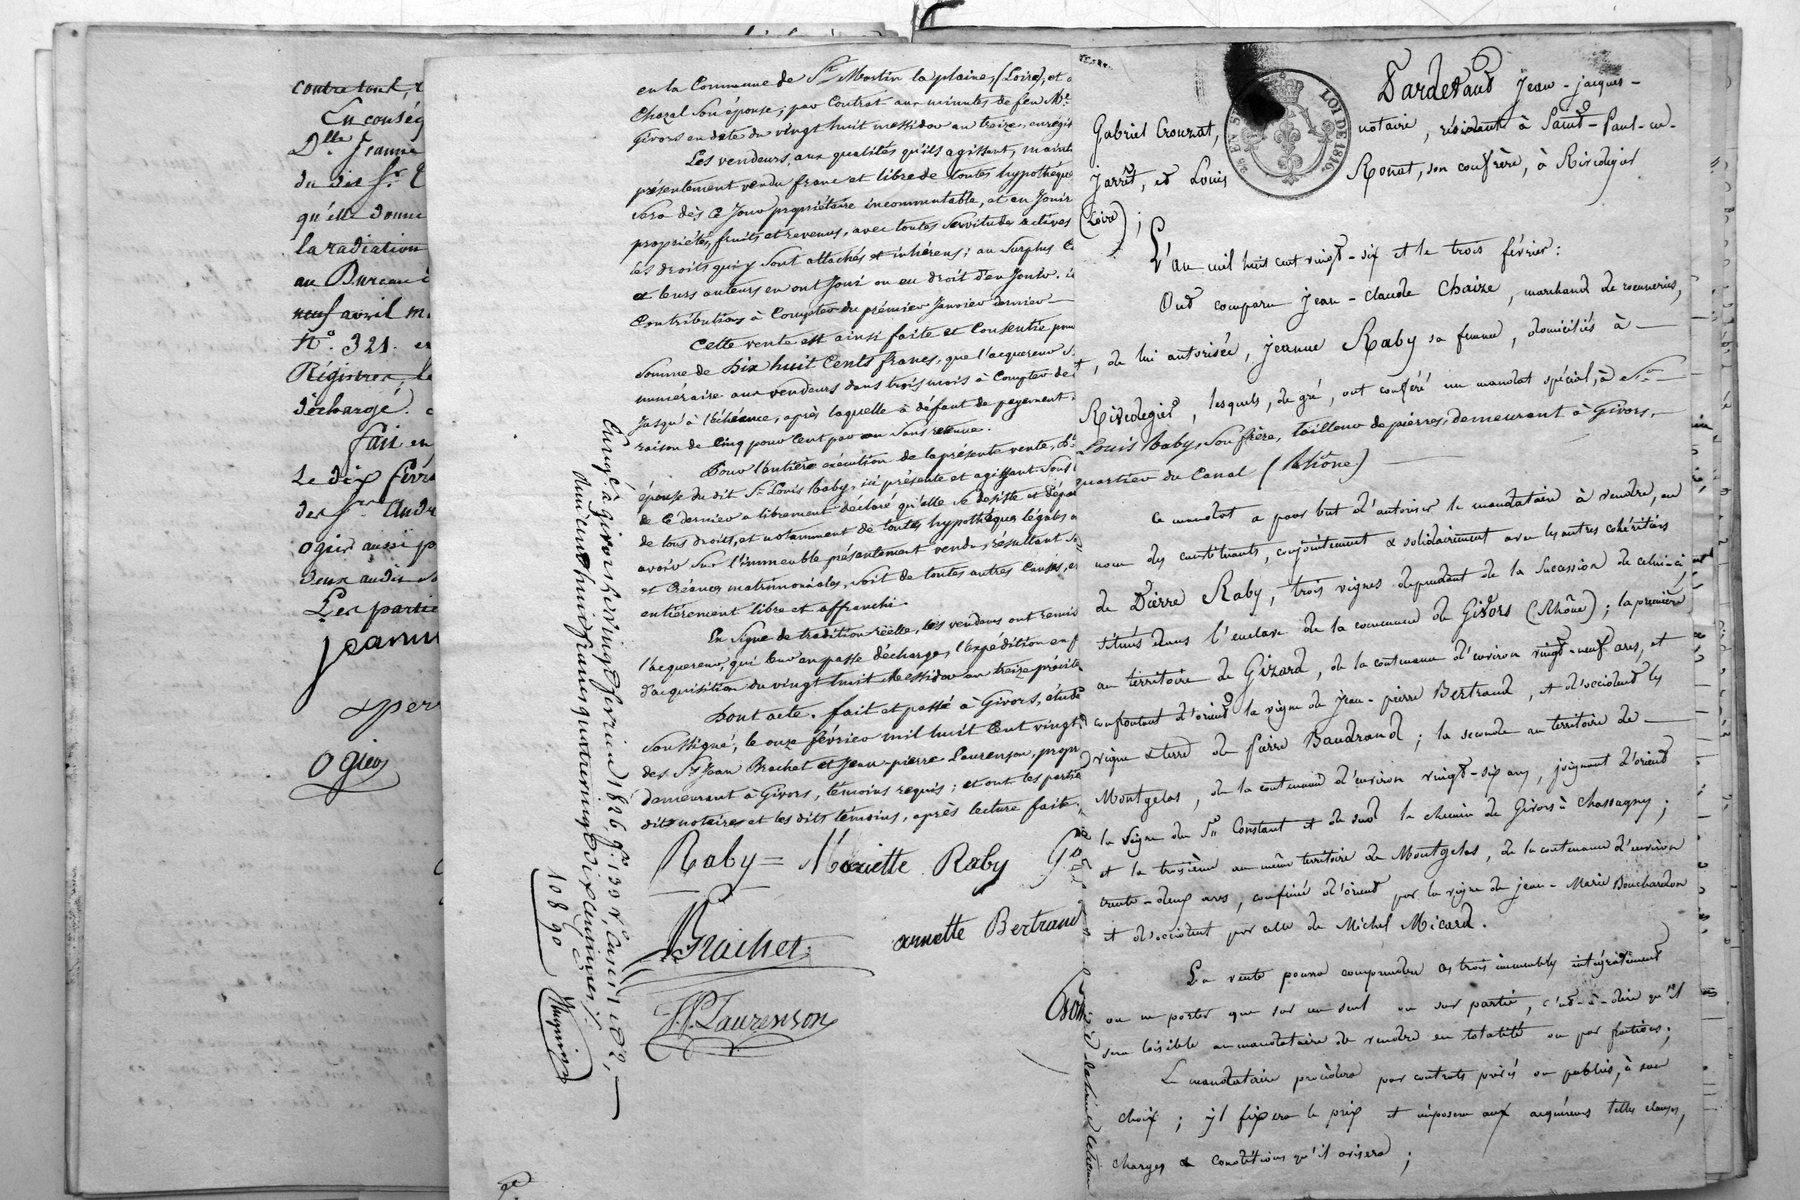 contre tout,
En conség
D.lle Jeanne
du dit S.r
qu'elle donne
la radiation
au Bureau
neuf avril m
N.o 321. en
Régistrer, le
déchargé.
fait en
Le dix févr
des S.rs André
ogier aussi p
deux audit
Les partie
jeann
exper
Ogier
en la Commune de S.t Martin la plaine, (Loire), et
Chazal son épouse, par Contrat aux minutes de feu M.e
Givors en date du vingt huit messidor an treize, enregist
Les vendeurs, aux qualités qu'ils agissent, maint
présentement vendu franc et libre de toutes hypothèque
sera dès ce Jour propriétaire incommutable, et en Jouir
propriétés, fruits et revenus, avec toutes Servitudes actives
les droits qui y sont attachés et inhérens; au Surplus
et leurs auteurs en ont Joui ou eu droit d'en Jouir.
Contributions à Compter du premier Janvier dernier
Cette vente est ainsi faite et Consentie pour
Somme de Dix huit Cents francs, que l'acquereur
numéraire aux vendeurs dans trois mois à Compter de
Jusqu'à l'échéance, après laquelle à défaut de payement
raison de Cinq pour Cent par an Sans retenue.
Pour l'entière exécution de la présente vente,
épouse du dit S.r Louis Raby, ici présente et agissant Sous
de Ce dernier a librement déclaré qu'elle Se désiste et dépar
de tous droits, et notamment de toutes hypothèques légales
avoir Sur l'immeuble présentement vendu, résultant
et Créances matrimoniales, Soit de toutes autres Causes, e
entièrement libre et affranchi.
En Signe de tradition réelle, les vendeurs ont remis
l'acquereur, qui leur en passe décharge, l'expédition en f
d'acquisition du vingt huit Messidor an treize précité
Dont acte. fait et passé à Givors, étude
Soussigné, le onze février mil huit Cent vingt
des S.rs Jean Brachet et Jean-pierre Laurenson, propr
demeurant à Givors, témoins requis; et ont les partie
dits notaires et les dits témoins, après lecture faite.
Raby = Mariette Raby
Brachet
Bertrand
J.P. Laurenson
Enreg.é à givors le vingt fevrier 1826, f.o 39 r.o Cases 1 et 2,
quatre vingt dix centimes
108 90
Tardevaud Jean-Jacques-
Gabriel Crouzat, notaire, résidant à Saint-Paul-en-
Jarret, et Louis Ronat, son confrère, à Rivedegier
(Loire);
L'an mil huit cent vingt-six et le trois février:
Ont comparu Jean-Claude Chaize, marchand de rouenneries,
et, de lui autorisée, Jeanne Raby sa femme, domiciliés à
Rivedegier, lesquels, de gré, ont conféré un mandat spécial, à S.r
Louis Raby, Son frère, tailleur de pierres, demeurant à Givors,
quartier du Canal (Rhône)
Ce mandat a pour but d'autoriser le mandataire à vendre, au
nom des constituants, conjointement & solidairement avec les autres cohéritiers
de Pierre Raby, trois vignes dépendant de la Succession de celui-ci,
situés dans l'enclave de la commune de Givors (Rhône); la première
au territoire de Gizard, de la contenance d'environ vingt-neuf ares, et
confrontant d'orient la vigne de Jean-pierre Bertrand, et d'occident les
vigne & terre de Pierre Baudrand; la seconde au territoire de
Montgelas, de la contenance d'environ vingt-six ares, joignant d'orient
la vigne du S.r Constant et de sud le chemin de Givors à Chassagny;
et la troisième au même territoire de Montgelas, de la contenance d'environ
trente-deux ares, confinée d'orient par la vigne de Jean-Marie Bouchardon
et d'occident par celle de Michel Micard.
La vente pourra comprendre ces trois immeubles intégralement
ou ne porter que sur un seul ou sur partie, c'est-à-dire qu'il
sera loisible au mandataire de vendre en totalité ou par fractions;
Le mandataire procédera par contrats privés ou publics, à son
choix; il fixera le prix et imposera aux acquéreurs telles clauses,
charges & conditions qu'il avisera;
LOI DE 1816.